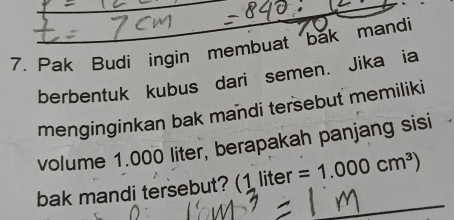 t = 7 cm = 840 :
70
7. Pak Budi ingin membuat bak mandi
berbentuk kubus dari semen. Jika ia
menginginkan bak mandi tersebut memiliki
volume 1.000 liter, berapakah panjang sisi
bak mandi tersebut? (1 liter = 1.000 cm³)
= 1 m